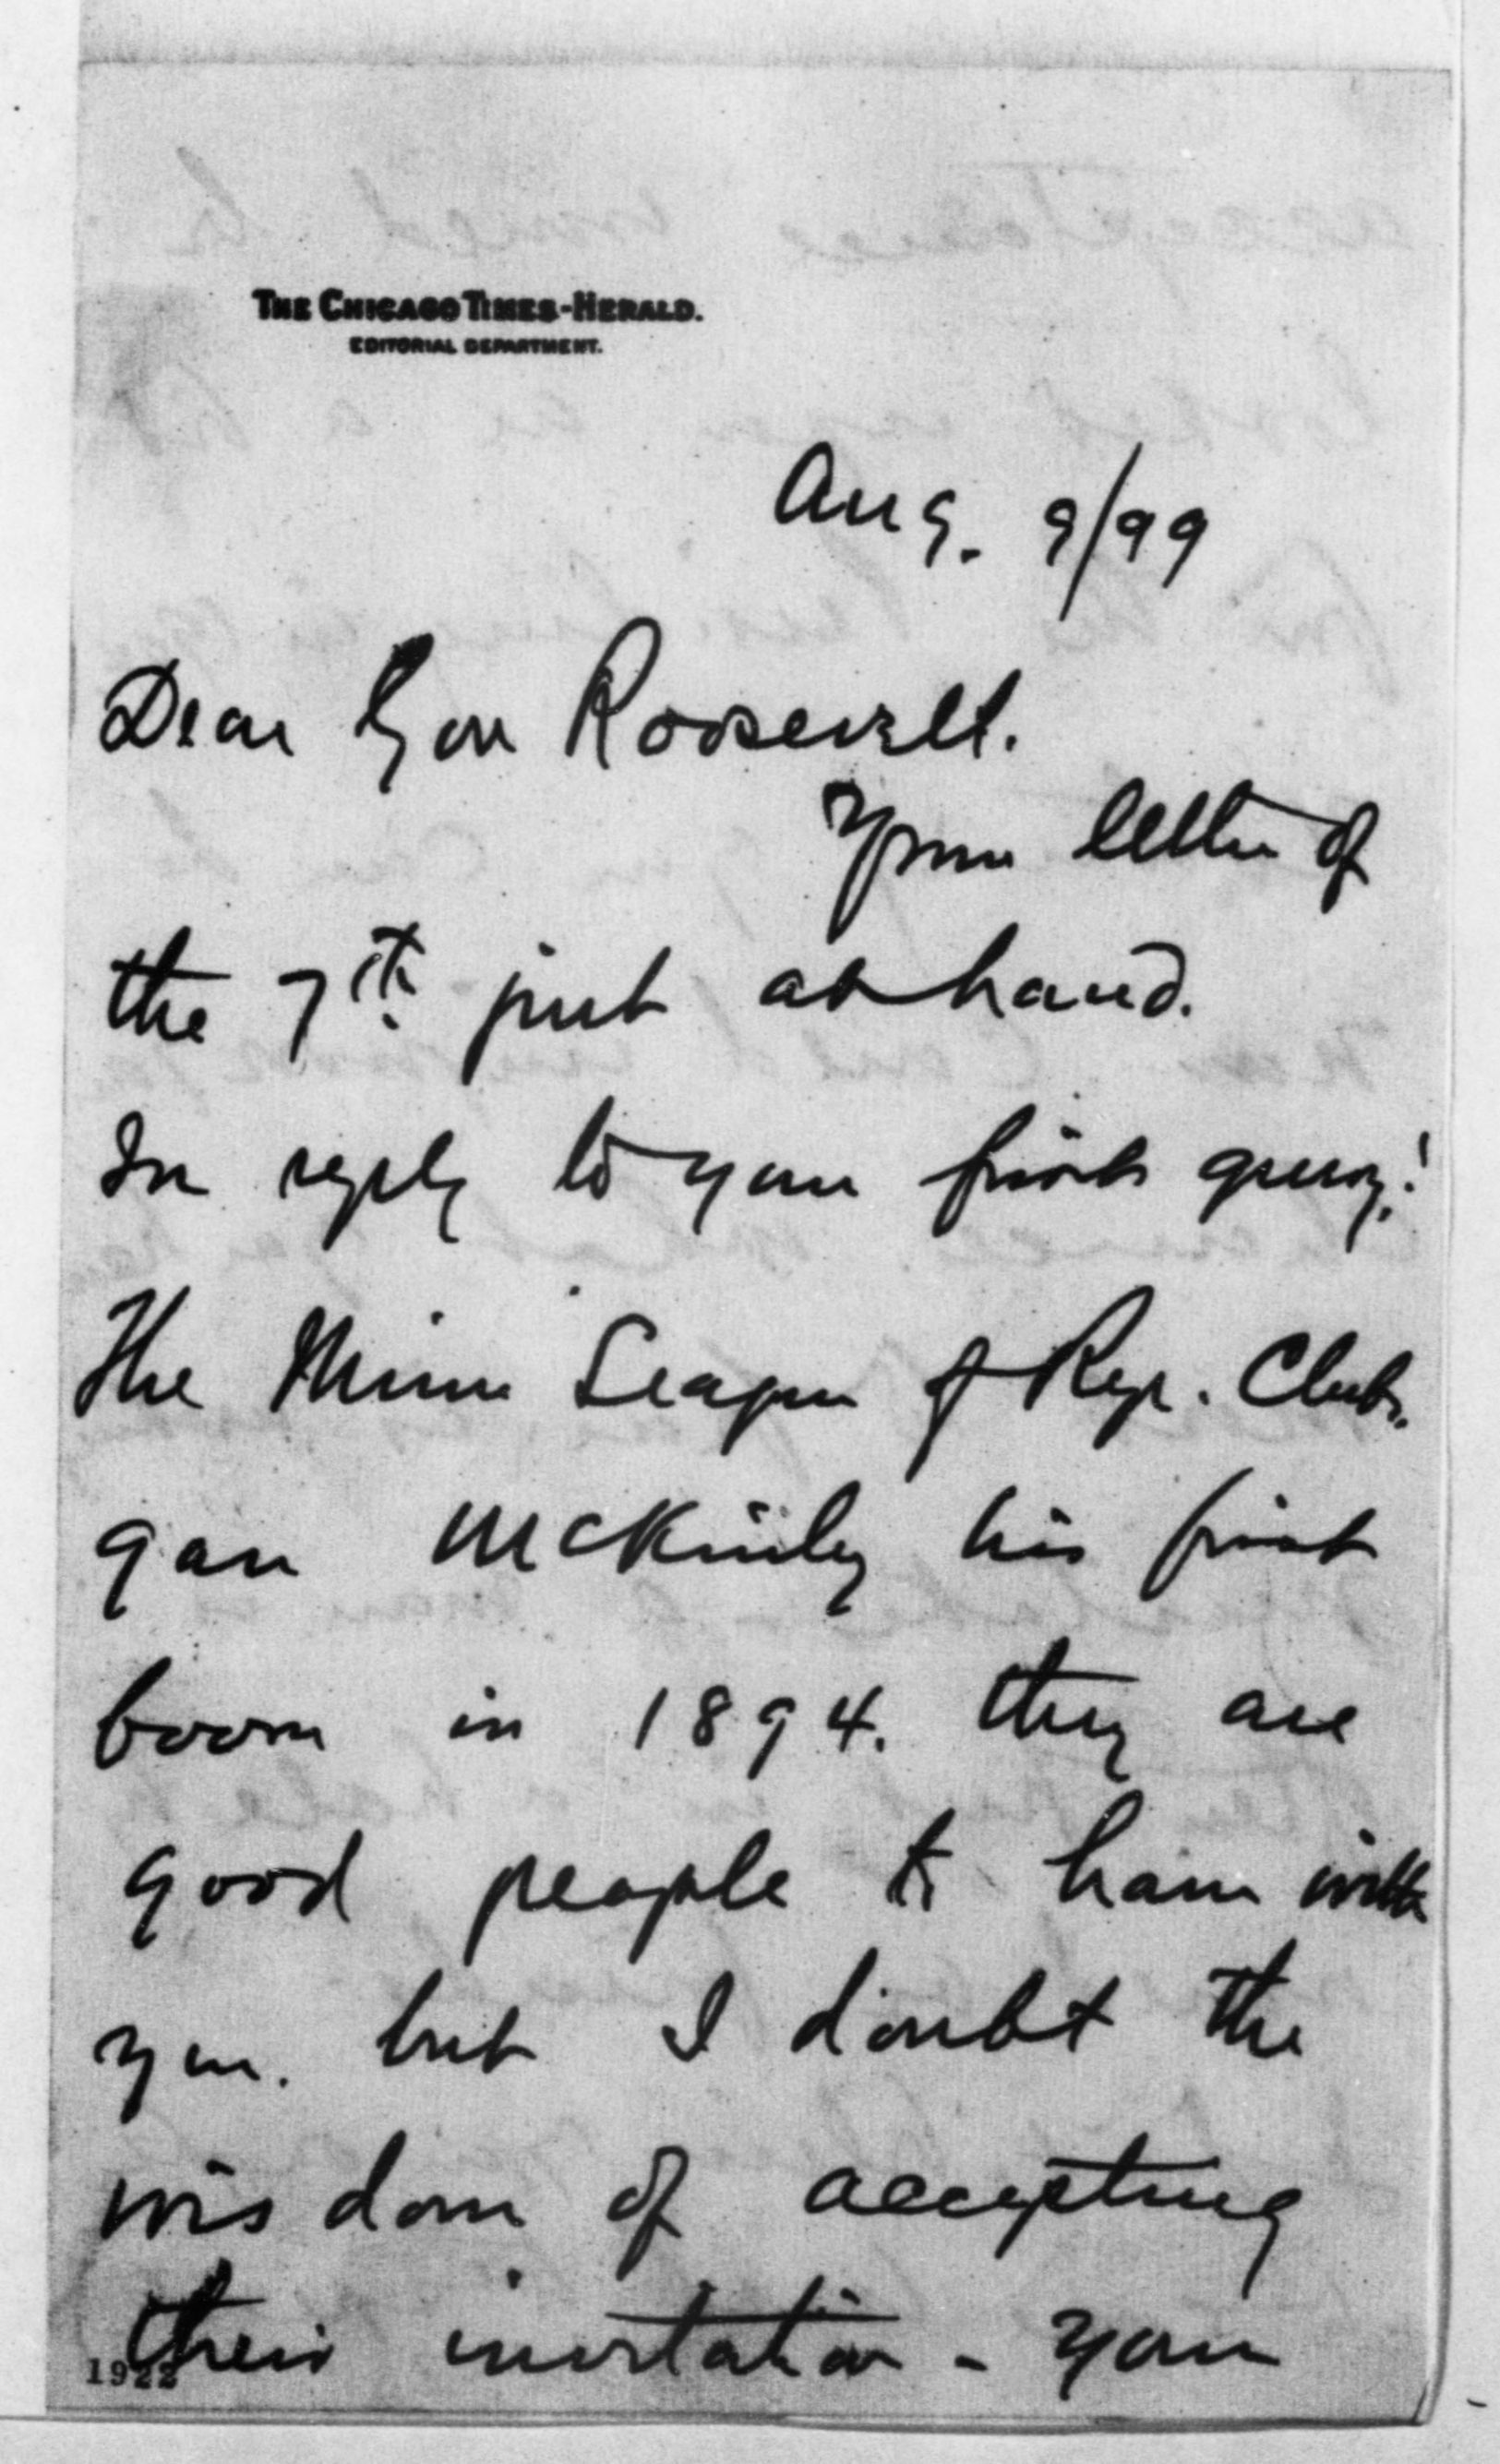 THE CHICAGO TIMES-HERALD.
EDITORIAL DEPARTMENT.
Aug. 9/99
Dear Gov Roosevelt.
Your letter of
the 7th just at hand.
In reply to your first query:
The Minn League of Rep. Clubs.
gave McKinley his first
boom in 1894. they are
good people to have with
you. but I doubt the
wisdom of accepting
their invitation - your
1922